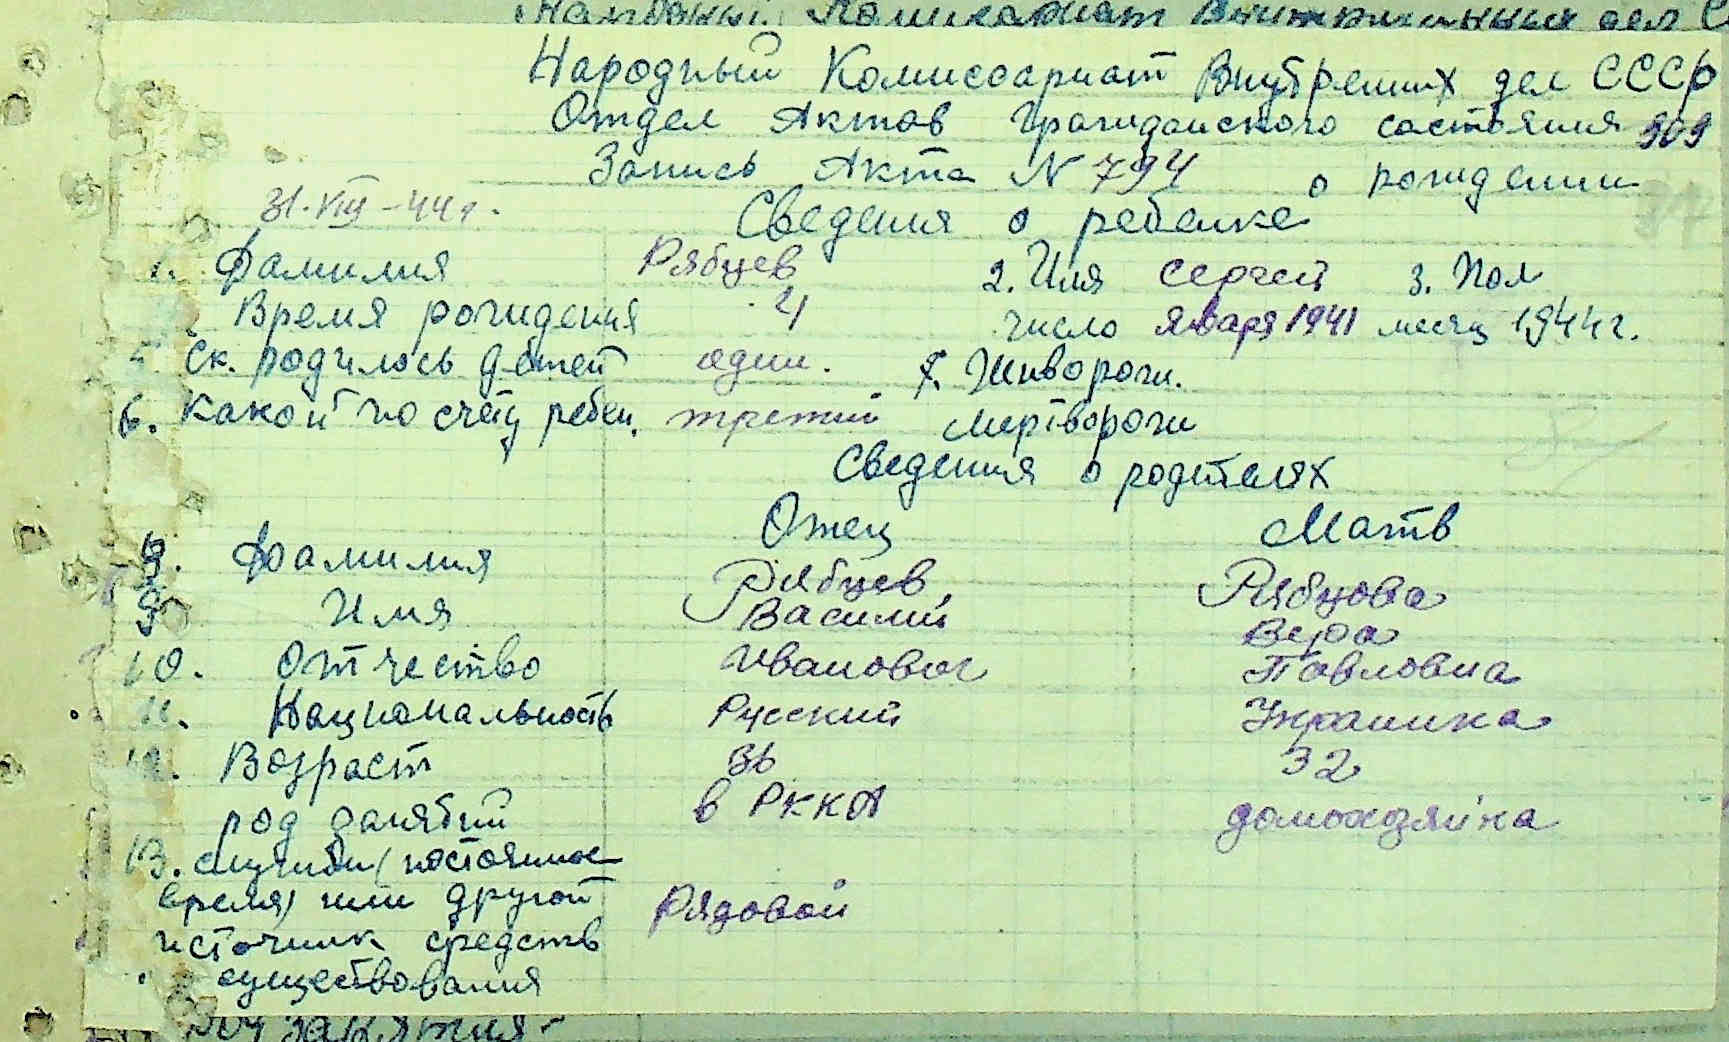 Народный Комиссариат Внутренних дел С
Народный Комиссариат Внутрених дел СССР
Отдел Актов Гражданского состояния 909
Запись Акта N 794 о рождении
31.VIII-44г. Сведения о ребенке
1. Фамилия Рябцев 2. Имя Сергей 3. Пол
Время рождения 4 число Января 1941 месяц 1944г.
5. Ск. родилось детей один. 7. Живорож.
6. Какой по счету ребен. третий Мертворож
Сведения о родителях
Отец Матв
8. Фамилия Рябцев Рябцова
9 Имя Василий Вера
10. Отчество Иванович Павловна
11. Национальность Русский Украинка
12. Возраст 36 32
род занятий в РККА домохозяйка
13. службы (постоянное
время) или другой Рядовой
источник средств
существования
род занятия-